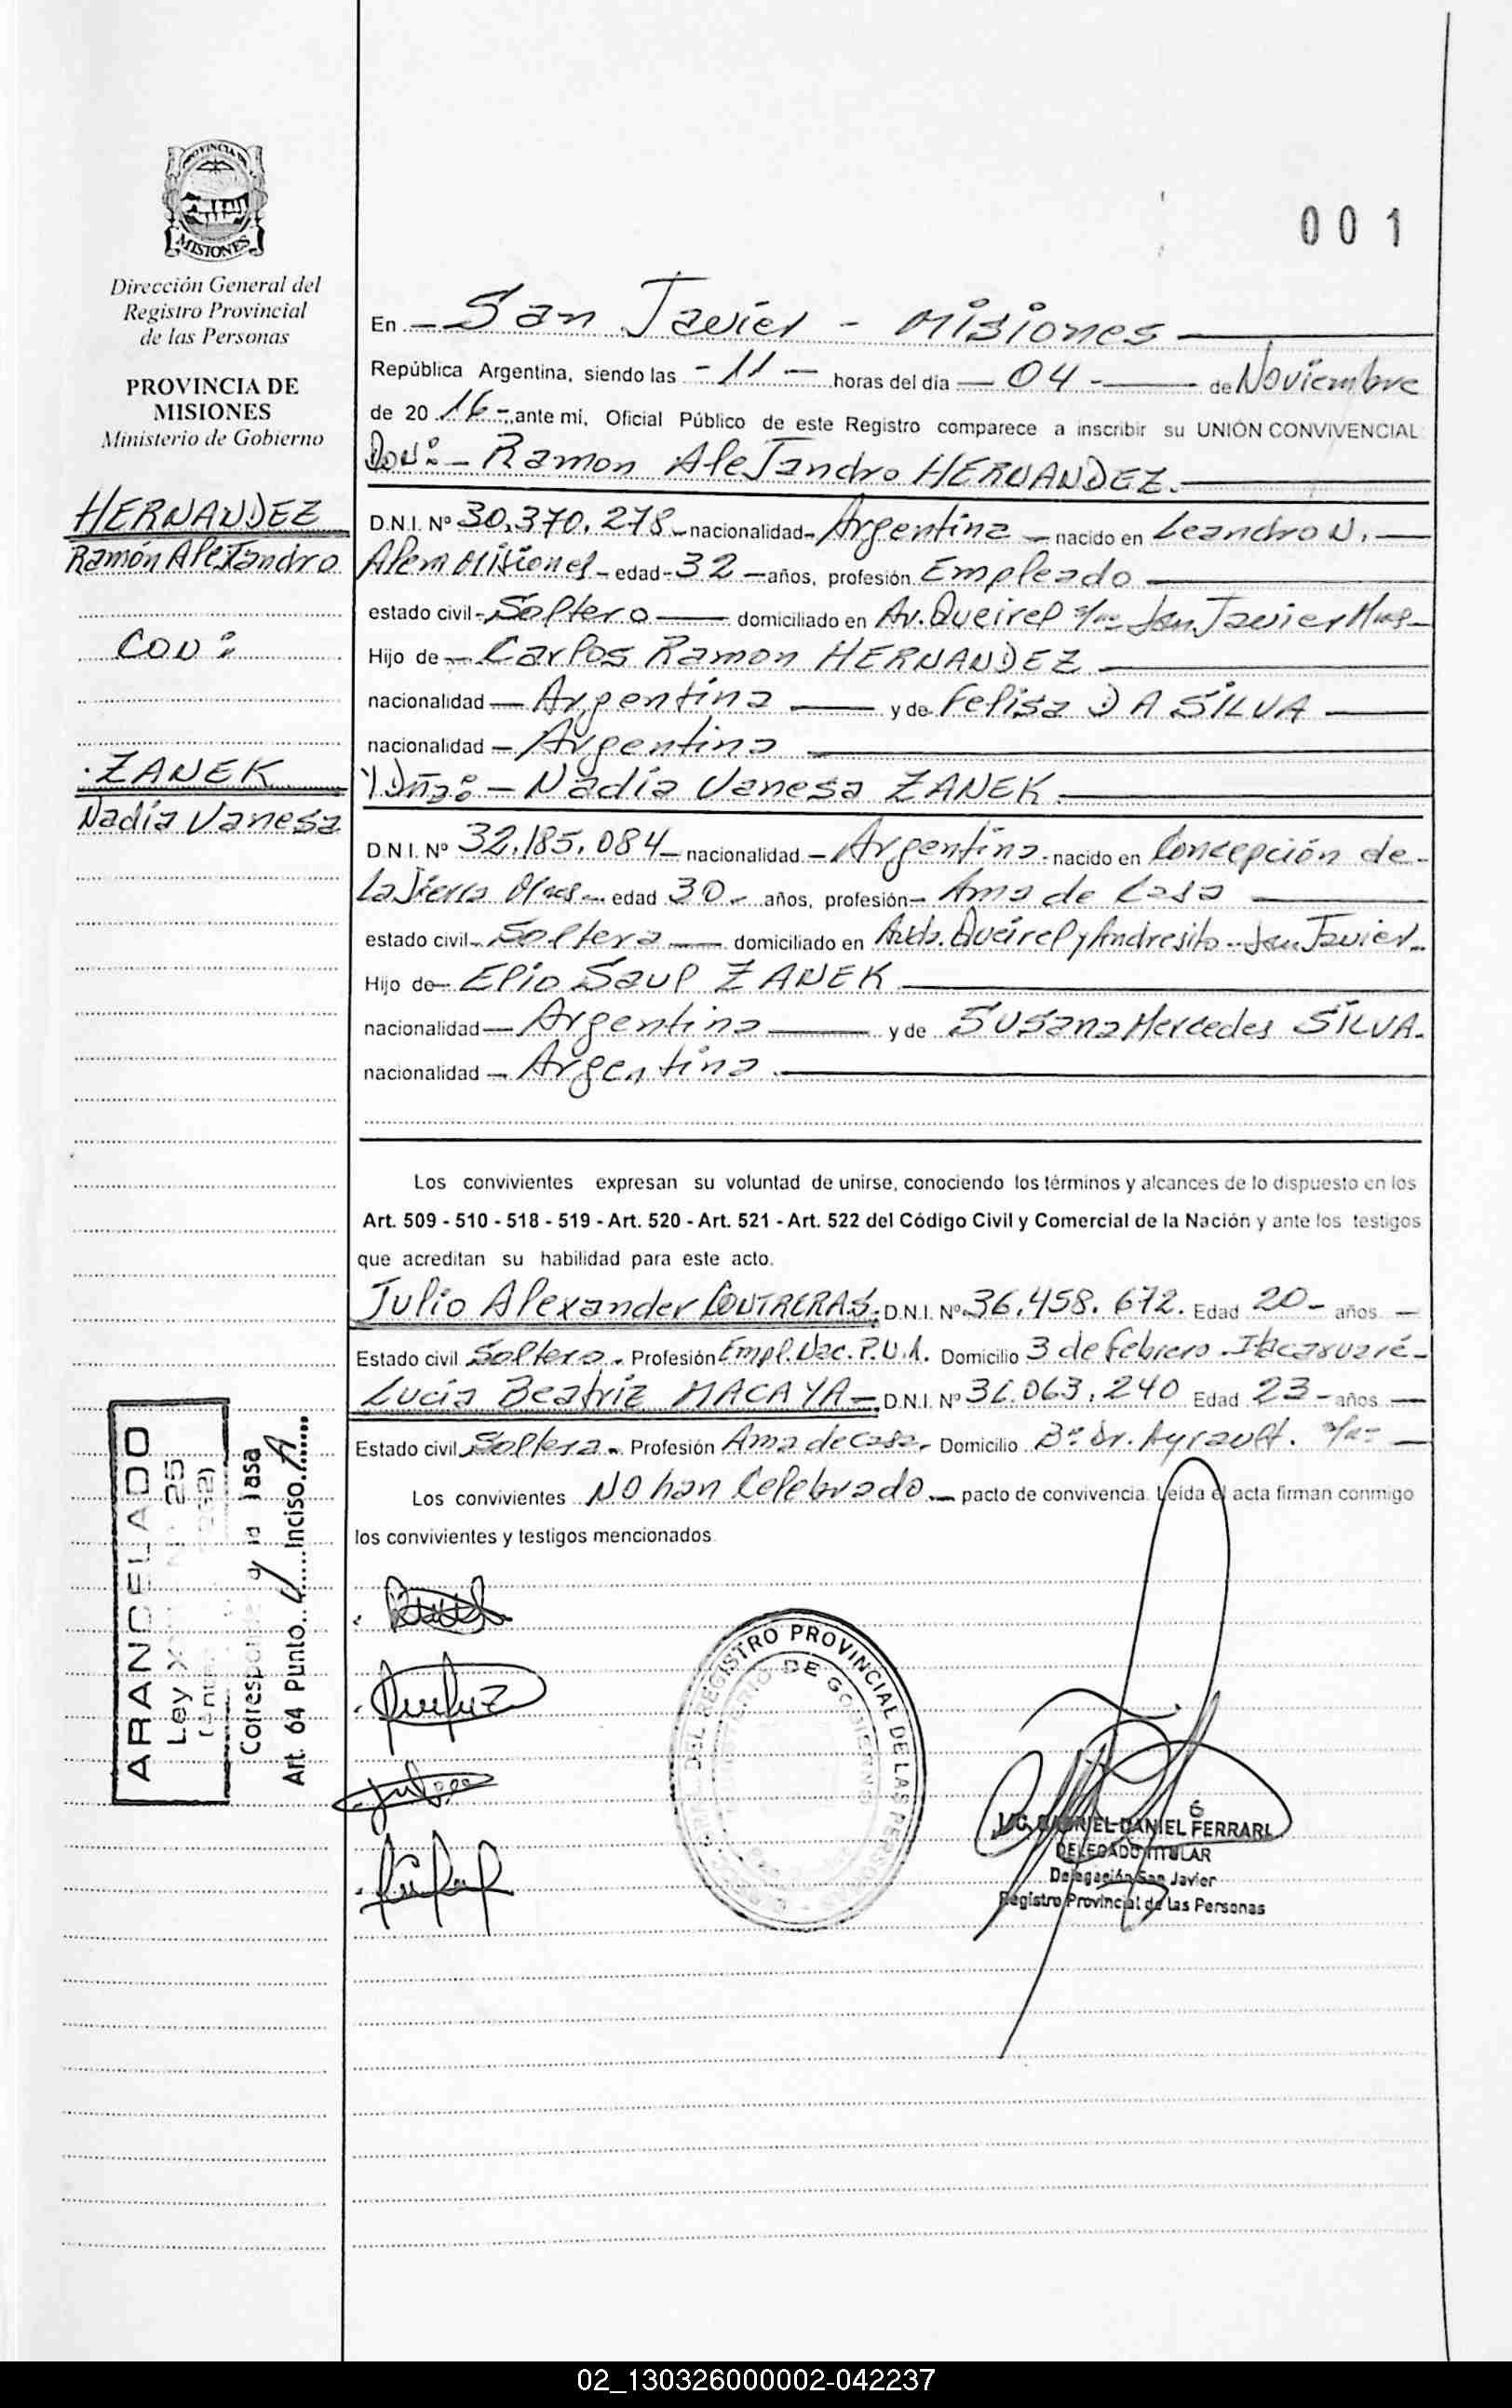 PROVINCIA DE
MISIONES
Dirección General del
Registro Provincial
de las Personas
PROVINCIA DE
MISIONES
Ministerio de Gobierno
HERNANDEZ
Ramón Alejandro
CON:
ZANEK
Nadía Vanesa
001
En - San Javier - Misiones
República Argentina, siendo las - 11 - horas del día - 04 - de Noviembre
de 20 16 - ante mí, Oficial Público de este Registro comparece a inscribir su UNIÓN CONVIVENCIAL
DON: - Ramon Alejandro HERNANDEZ.
D.N.I. Nº 30.370.278 - nacionalidad - Argentina - nacido en Leandro N. -
Alem Misiones - edad - 32 - años, profesión Empleado
estado civil - Soltero - domiciliado en Av. Queirel s/nº San Javier Mnes -
Hijo de - Carlos Ramon HERNANDEZ
nacionalidad - Argentina - y de Felisa DA SILVA
nacionalidad - Argentina
Y Dña: - Nadia Vanesa ZANEK.
D.N.I. Nº 32.185.084 - nacionalidad - Argentina - nacido en Concepción de -
La Sierra Mnes - edad 30 - años, profesión - Ama de Casa
estado civil - Soltera - domiciliado en Avda. Queirel y Andresito - San Javier -
Hijo de - Elio Saul ZANEK
nacionalidad - Argentina - y de Susana Mercedes SILVA.
nacionalidad - Argentina.
Los convivientes expresan su voluntad de unirse, conociendo los términos y alcances de lo dispuesto en los
Art. 509 - 510 - 518 - 519 - Art. 520 - Art. 521 - Art. 522 del Código Civil y Comercial de la Nación y ante los testigos
que acreditan su habilidad para este acto.
Julio Alexander CONTRERAS. D.N.I. Nº 36.458.672. Edad 20 - años -
Estado civil Soltero - Profesión Empl. Nac. P.N.A. Domicilio 3 de Febrero Itacaruaré -
Lucía Beatriz MACAYA - D.N.I. Nº 36.063.240 Edad 23 - años -
Estado civil Soltera - Profesión Ama de casa - Domicilio Bº Dr. Ayrault. s/nº -
Los convivientes NO han Celebrado - pacto de convivencia. Leída el acta firman conmigo
los convivientes y testigos mencionados.
ARANCELADO
Ley X
25
Corresponde la Tasa
Art. 64 Punto 4 Inciso A
DEL REGISTRO PROVINCIAL DE LAS PERSONAS
MINISTERIO DE GOBIERNO
LIC. GABRIEL DANIEL FERRARI
DELEGADO TITULAR
Delegación San Javier
Registro Provincial de las Personas
02_130326000002-042237